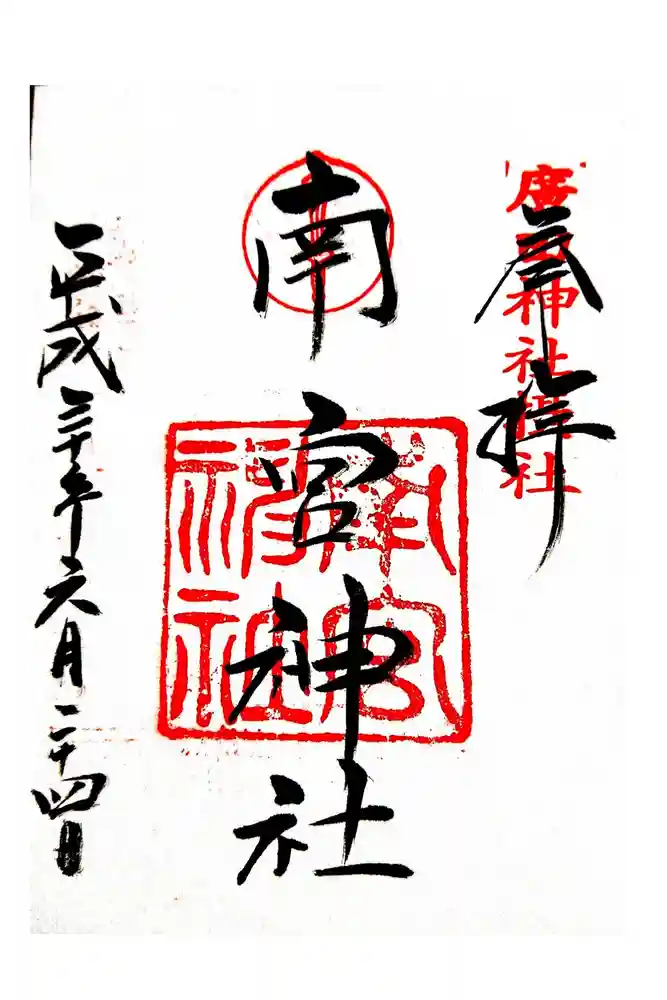 奉拝
廣田神社攝社
南宮神社
南宮
神社
平成三十年六月二十四日